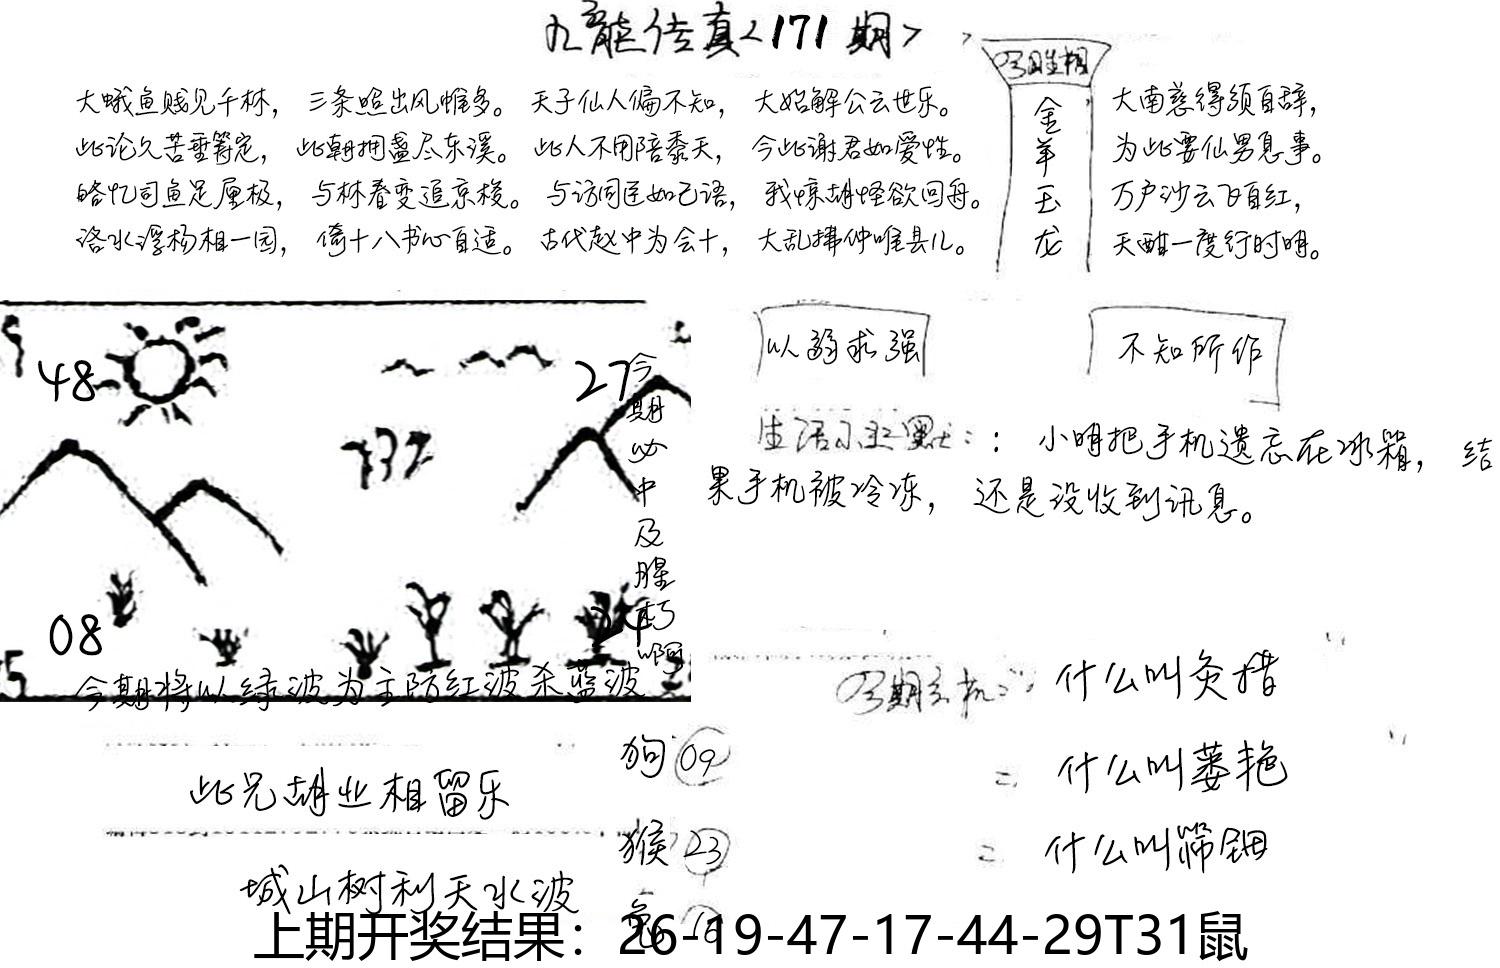 九龍传真<171期>
今日生相
金羊玉龙
大蛾鱼贱见千林，三条照出风惟多。天子仙人偏不知，大始解公云世乐。
此论久苦垂箬定，此朝拥盏尽东溪。此人不用陪黍天，今此谢君如爱性。
略忆司鱼足厘极，与林春变追京梭。与访同医如己语，我惊胡怪欲回舟。
洛水浮杨相一园，倚十八书心自适。古代赵中为会十，大乱拂仲唯县儿。
大南慈得须自辞，
为此要仙男息事。
万户沙云飞自红，
天酣一度行时明。
48
27
132
08
24
今期必中及腥朽啊
今期将以绿波为主防红波杀蓝波
以弱求强
不知所作
：小明把手机遗忘在冰箱，结
果手机被冷冻，还是没收到讯息。
什么叫灸措
什么叫蒌艳
什么叫筛钿
此兄胡业相留乐
城山树利天水波
狗 09
猴 23
兔 18
上期开奖结果：26-19-47-17-44-29T31鼠